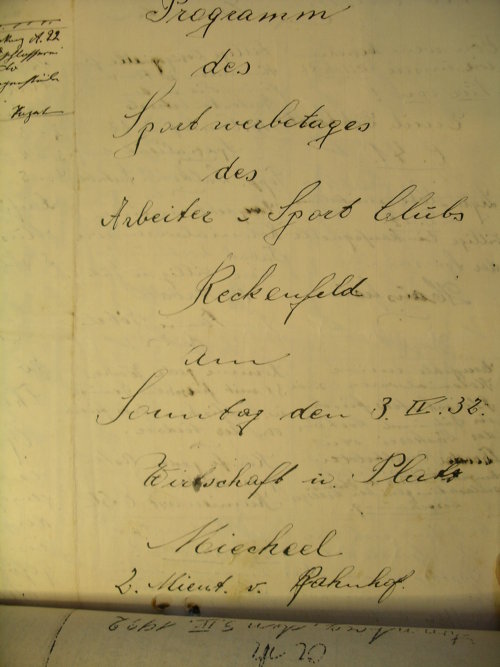 Programm
des
Sportwerbetages
des
Arbeiter - Sport Clubs
Reckenfeld
am
Sonntag den 3. IV. 32.
Wirtschaft u. Platz
Miecheel
2. Minut. v. Bahnhof.